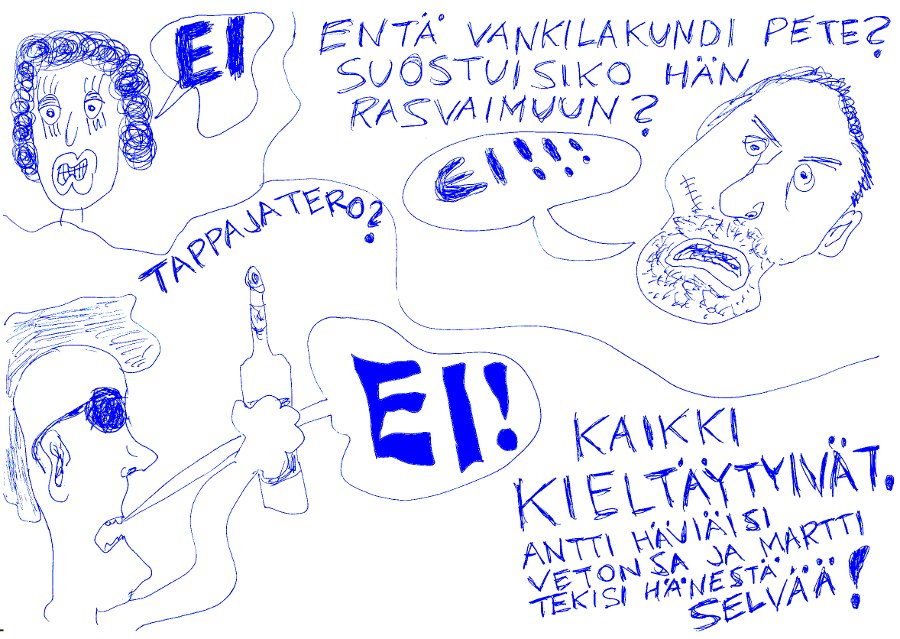 EI
ENTÄ VANKILAKUNDI PETE?
SUOSTUISIKO HÄN
RASVAIMUUN?
EI!!!
TAPPAJATERO?
EI!
KAIKKI
KIELTÄYTYIVÄT.
ANTTI HÄVIÄISI
VETONSA JA MARTTI
TEKISI HÄNESTÄ...
SELVÄÄ!